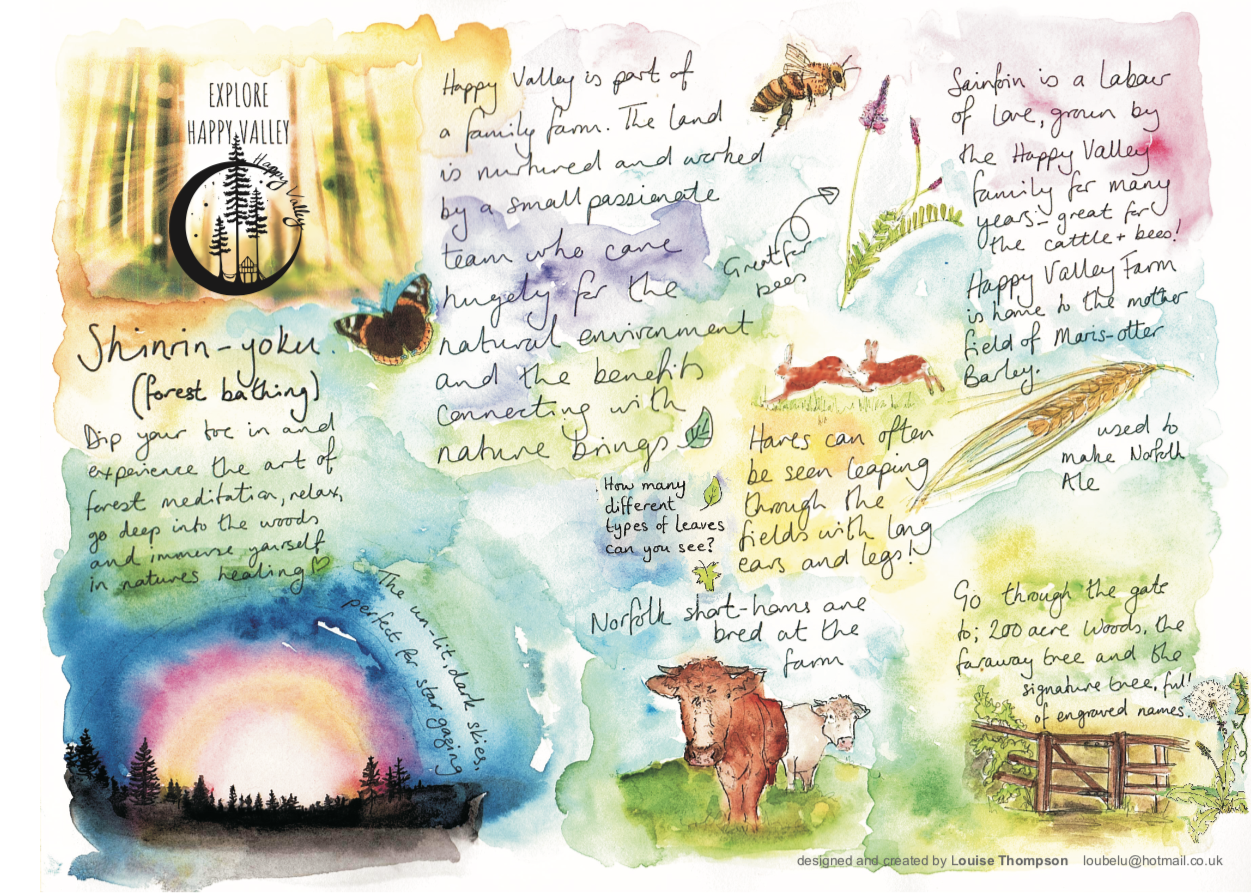 EXPLORE
HAPPY VALLEY
Happy Valley
Shinrin-yoku.
(forest bathing)
Dip your toe in and
experience the art of
forest meditation, relax,
go deep into the woods
and immerse yourself
in natures healing♡
The un-lit, dark skies,
perfect for star gazing
Happy Valley is part of
a family farm. The land
is nurtured and worked
by a small passionate
team who care
hugely for the
natural environment
and the benefits
connecting with
nature brings
Great for
bees
How many
different
types of leaves
can you see?
Hares can often
be seen leaping
through the
fields with long
ears and legs!
Norfolk short-horns are
bred at the
farm
Sainfoin is a labour
of love, grown by
the Happy Valley
family for many
years - great for
the cattle + bees!
Happy Valley Farm
is home to the mother
field of Maris-otter
Barley.
used to
make Norfolk
Ale
Go through the gate
to; 200 acre woods, the
faraway tree and the
signature tree, full
of engraved names.
designed and created by Louise Thompson loubelu@hotmail.co.uk